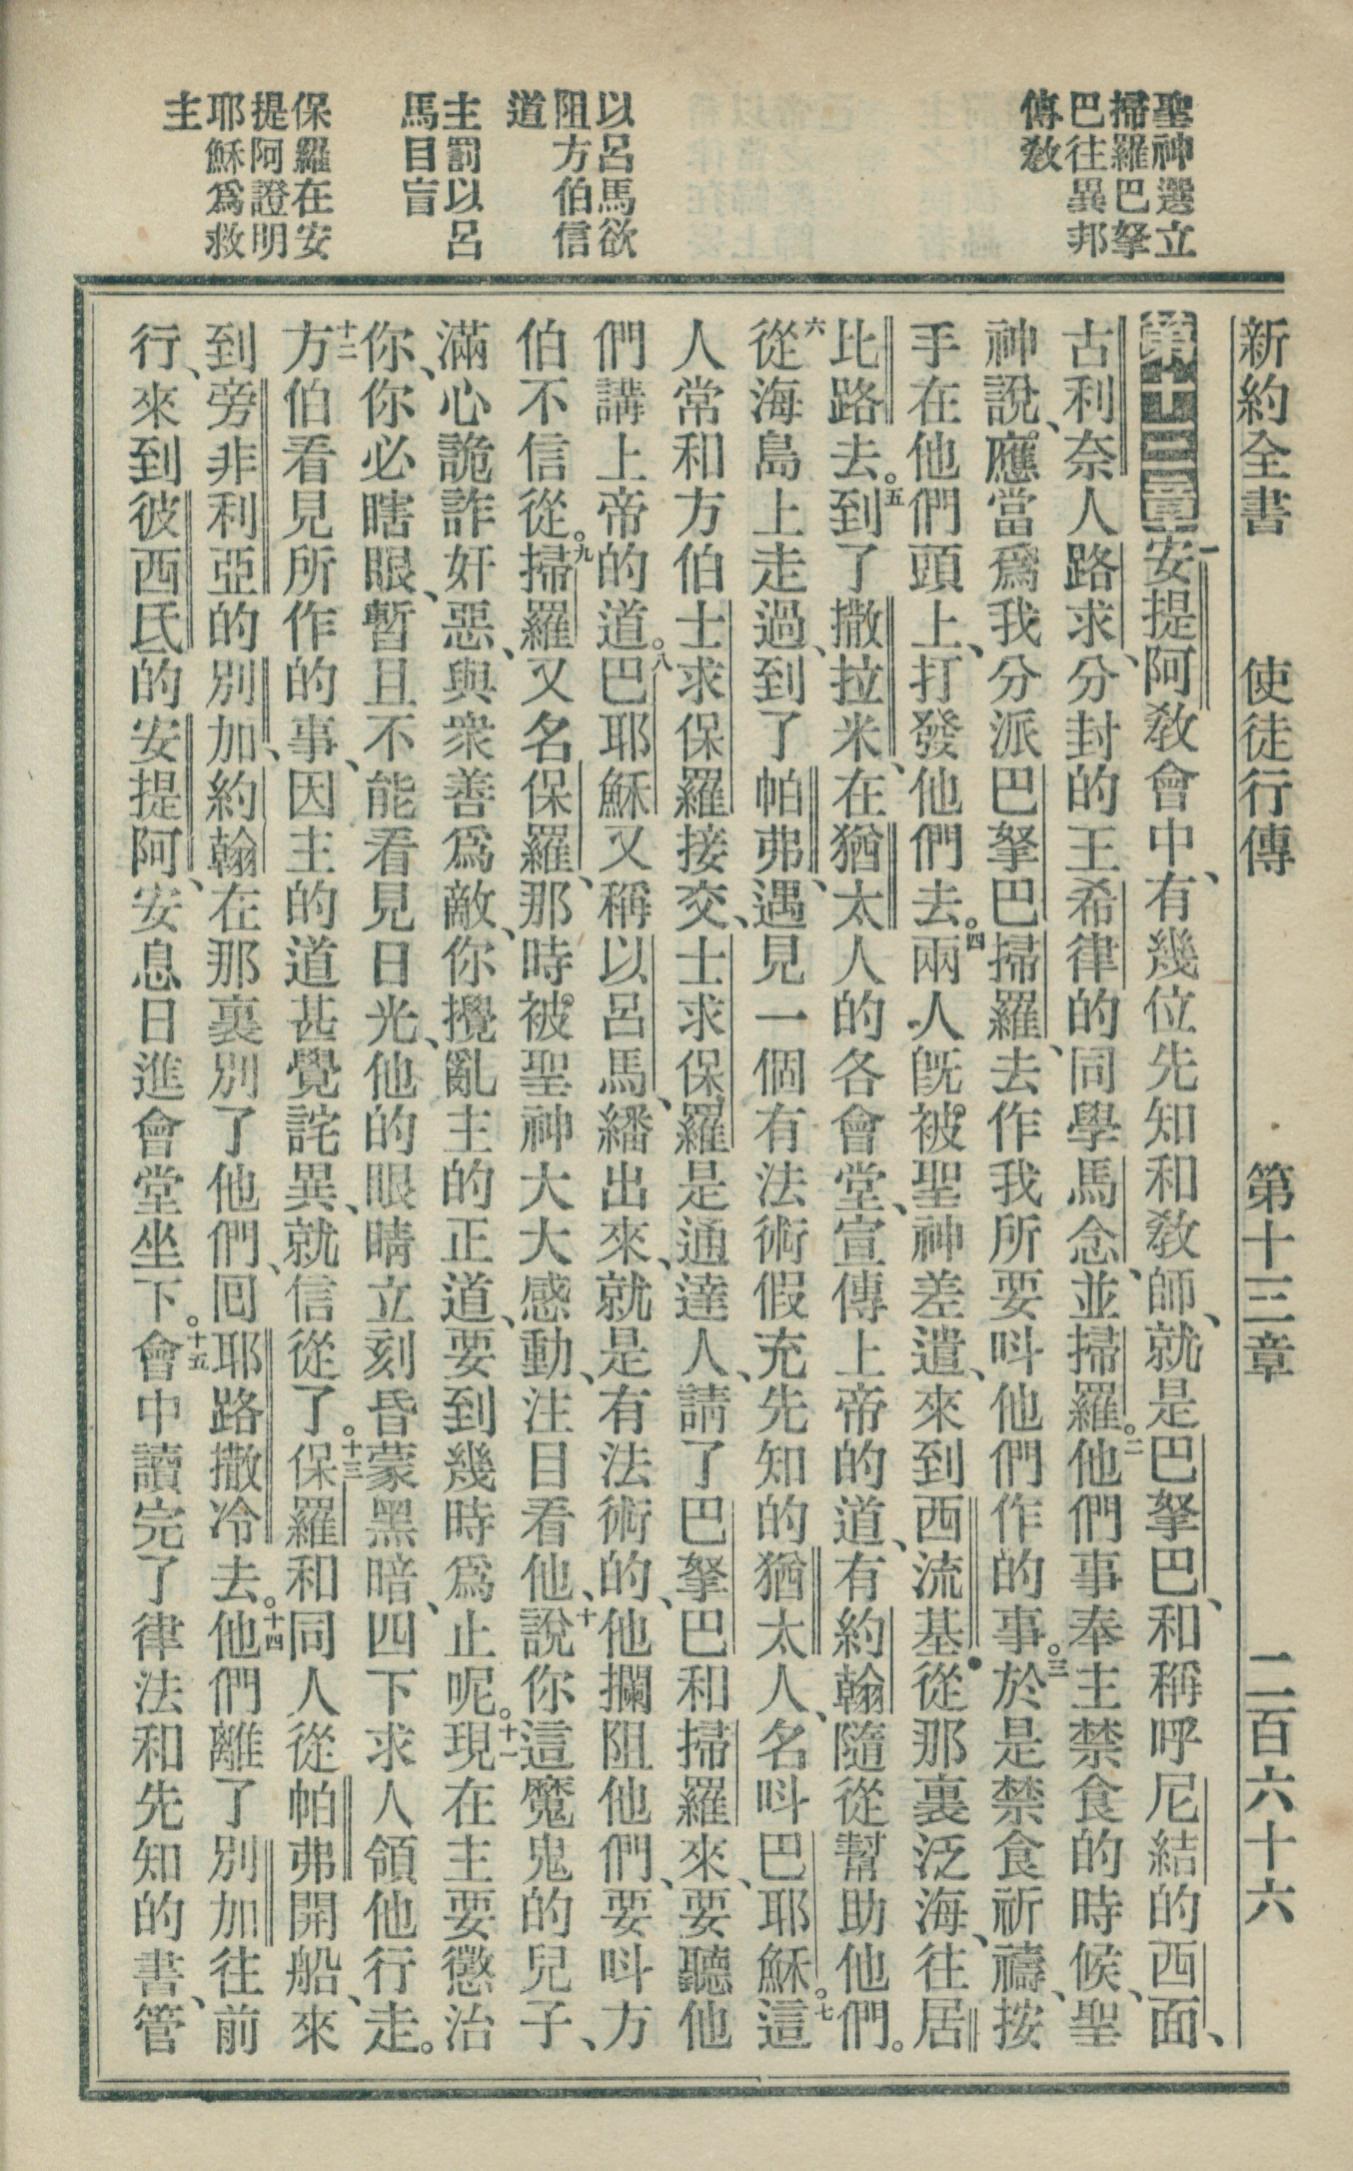 聖神選立
掃羅巴拏
巴往異邦
傳敎
以呂馬欲
阻方伯信
道
主罰以呂
馬目盲
保羅在安
提阿證明
耶穌爲救
主
新約全書 使徒行傳 第十三章 二百六十六
第十三章一安提阿敎會中、有幾位先知和敎師、就是巴拏巴、和稱呼尼結的西面、
古利奈人路求、分封的王希律的同學馬念、並掃羅。二他們事奉主禁食的時候、聖
神說、應當爲我分派巴拏巴掃羅、去作我所要呌他們作的事。三於是禁食祈禱、按
手在他們頭上、打發他們去。四兩人旣被聖神差遣、來到西流基●從那裏泛海、往居
比路去。五到了撒拉米、在猶太人的各會堂、宣傳上帝的道、有約翰隨從幫助他們。
六從海島上走過、到了帕弗、遇見一個有法術假充先知的猶太人、名呌巴耶穌。七這
人常和方伯士求保羅接交、士求保羅是通達人、請了巴拏巴和掃羅來、要聽他
們講上帝的道。八巴耶穌又稱以呂馬、繙出來、就是有法術的、他攔阻他們、要呌方
伯不信從。九掃羅又名保羅、那時被聖神大大感動、注目看他、十說你這魔鬼的兒子、
滿心詭詐奸惡、與衆善爲敵、你攪亂主的正道、要到幾時爲止呢。十一現在主要懲治
你、你必瞎眼、暫且不能看見日光、他的眼睛立刻昏蒙黑暗、四下求人領他行走。
十二方伯看見所作的事、因主的道甚覺詫異、就信從了。十三保羅和同人從帕弗開船、來
到旁非利亞的別加、約翰在那裏別了他們、囘耶路撒冷去。十四他們離了別加往前
行、來到彼西氐的安提阿、安息日進會堂坐下。十五會中讀完了律法和先知的書、管